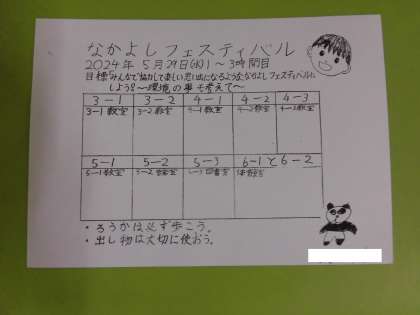 なかよしフェスティバル
2024年 5月29日(水)1～3時間目
目標"みんなで協力して楽しい思い出になるようななかよしフェスティバルに
しよう!!～環境の事も考えて～
3-1 3-2 4-1 4-2 4-3
3-1教室 3-2教室 4-1教室 4-2教室 4-3教室
5-1 5-2 5-3 6-1と6-2
5-1教室 5-2 5-3 体育館
・ろうかは必ず歩こう。
・出し物は大切に使おう。